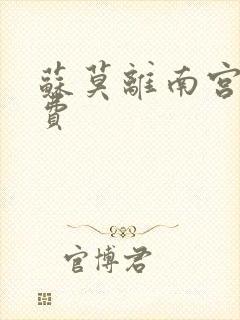 蘇莫離南宮
費
官博君